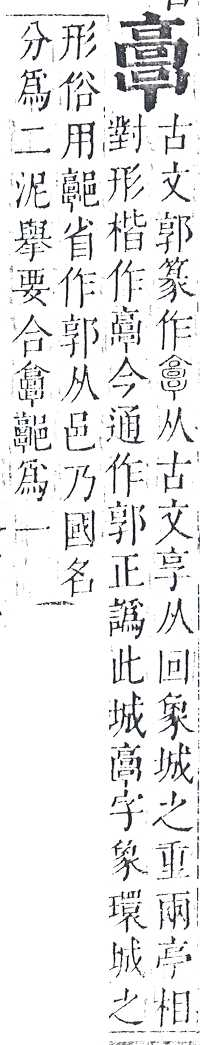 𩫏
古文郭篆作從古文享从回象城之重兩亭相
對形楷作𩫏今通作郭正譌此城𩫏字象環城之
形俗用省作郭从邑乃國名
分爲二泥舉要合爲一